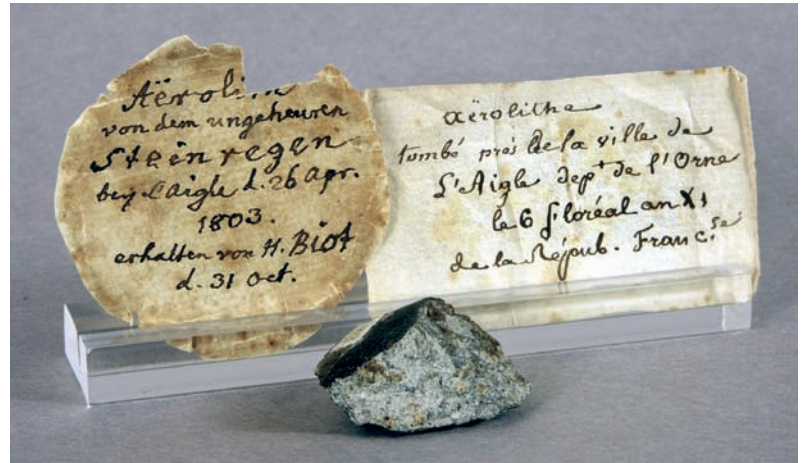 Aëroli
von dem ungeheuren
Steinregen
bey l'Aigle d. 26 Apr.
1803.
erhalten von H. Biot
d. 31 Oct.
aërolithe
tombé près de la ville de
L'Aigle dept de l'Orne
le 6 floréal an XI
de la Répub. Franc.se